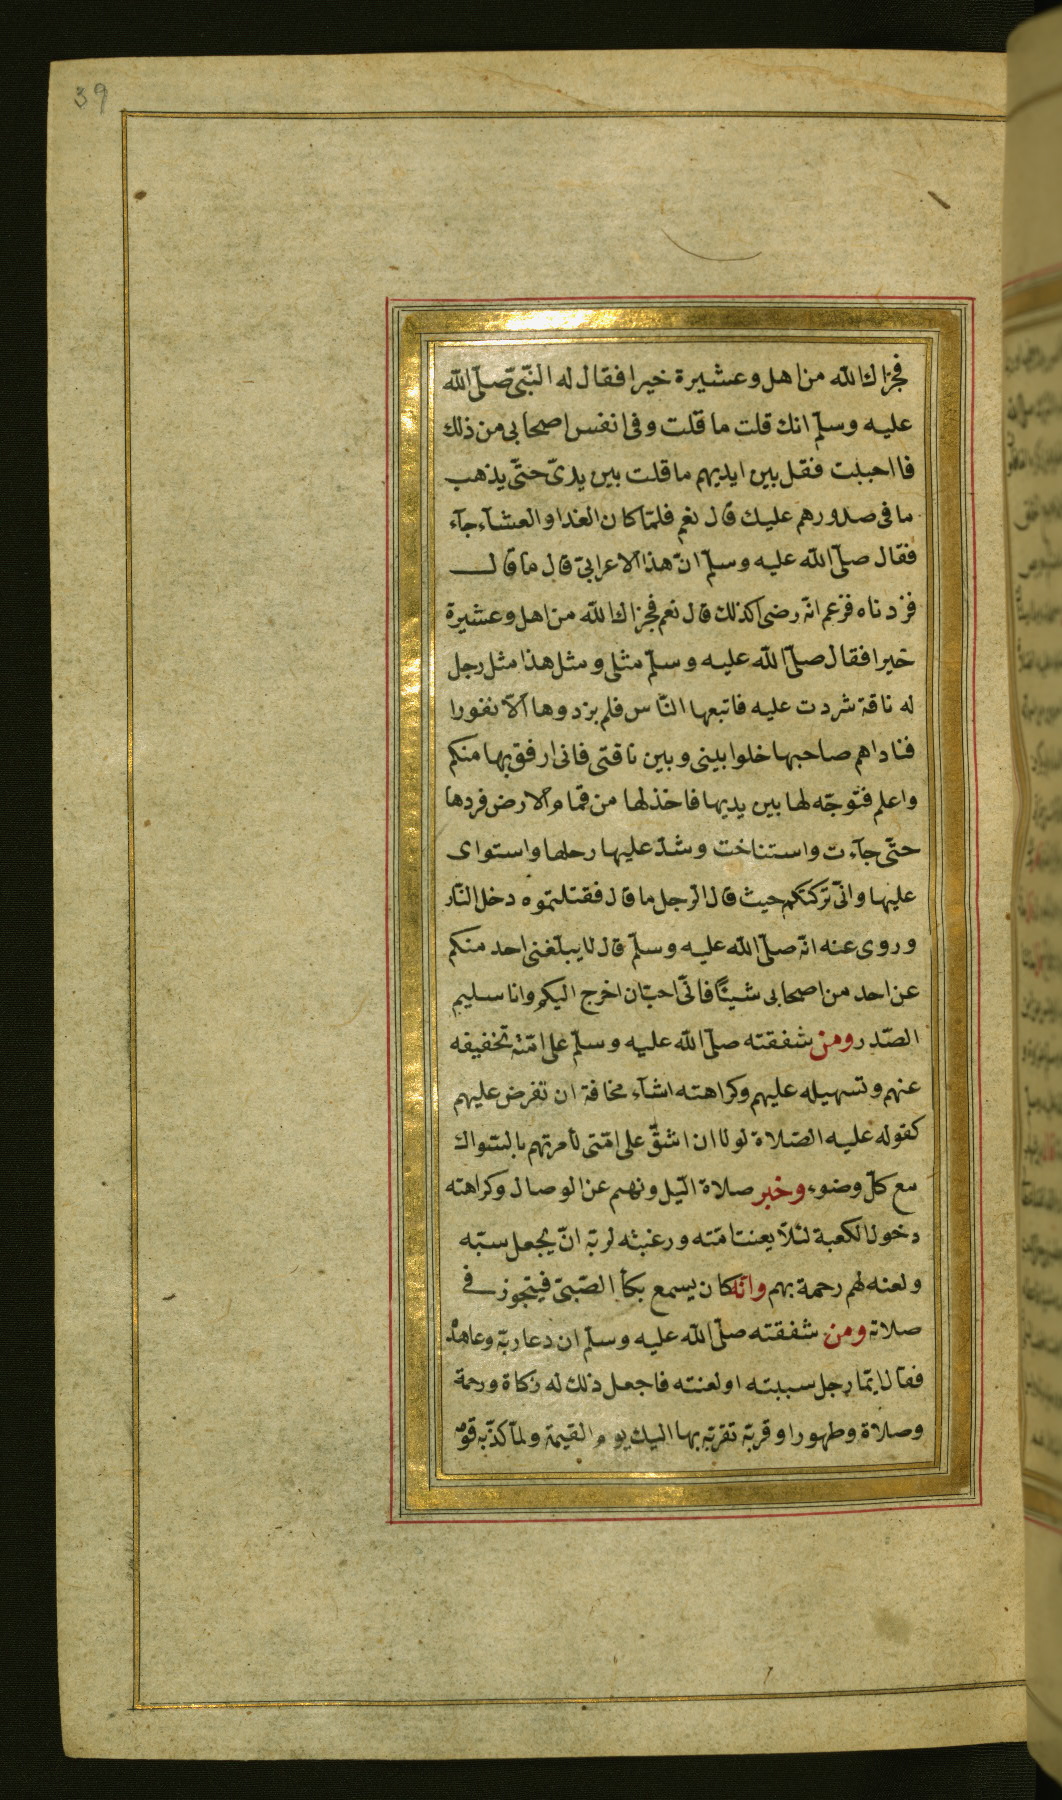 39
فجزاك الله من اهل وعشيرة خيرا فقال له النّبىّ صلّى الله
عليه وسلّم انك قلت ما قلت وفى انفس اصحابى من ذلك
فا احببت فقل بين ايديهم ما قلت بين يدىّ حتّى يذهب
ما فى صدورهم عليك قال نعم فلمّا كان الغدا والعشآء جآء
فقال صلّى الله عليه وسلّم انّ هذا الاعرابىّ قال ما قال
فزدناه فزعم انّه رضى اكذلك قال نعم فجزاك الله من اهل وعشيرة
خيرا فقال صلّى الله عليه وسلّم مثلى ومثل هذا مثل رجل
له ناقة شردت عليه فاتبعها النّاس فلم يزدوها الّا نفورا
فناداهم صاحبها خلوا بينى وبين ناقتى فانى ارفق بها منكم
واعلم فتوجّه لها بين يديها فاخذ لها من قمام الارض فردها
حتّى جآءت واستناخت وشدّ عليها رحلها واستواى
عليها وانّى تركتكم حيث قال الرجل ما قال فقتلتموه دخل النّار
وروى عنه انّه صلّى الله عليه وسلّم قال لا يبلّغنى احد منكم
عن احد من اصحابى شيئًا فانّى احبّ ان اخرج اليكم وانا سليم
الصّدر ومن شفقته صلّى الله عليه وسلّم على امّته تخفيفه
عنهم وتسهيله عليهم وكراهته اشآء مخافة ان تفرض عليهم
كقوله عليه الصّلاة لولا ان اشقّ على امّتى لأمرتهم بالسّواك
مع كلّ وضوء وخبر صلاة الّيل ونهيهم عن الوصال وكراهته
دخول الكعبة لئلّا يعنت امّته ورغبته لربّه انّ يجعل سبّه
ولعنه لهم رحمة بهم وانّه كان يسمع بكأ الصّبىّ فيتجوز فى
صلاته ومن شفقته صلّى الله عليه وسلّم ان دعا ربّه وعاهده
فقال ايّما رجل سببته او لعنته فاجعل ذلك له زكاة ورحمة
وصلاة وطهورا وقربة تقرّبه بها اليك يوم القيمة ولمّا كذّبه قومه